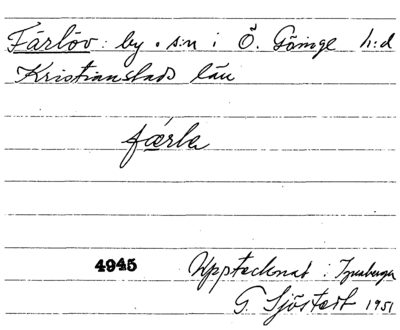 Färlöv: by o. s:n i Ö. Göinge h:d
Kristianstads län
færla
4945 Upptecknat i
G. Sjöstedt 1951